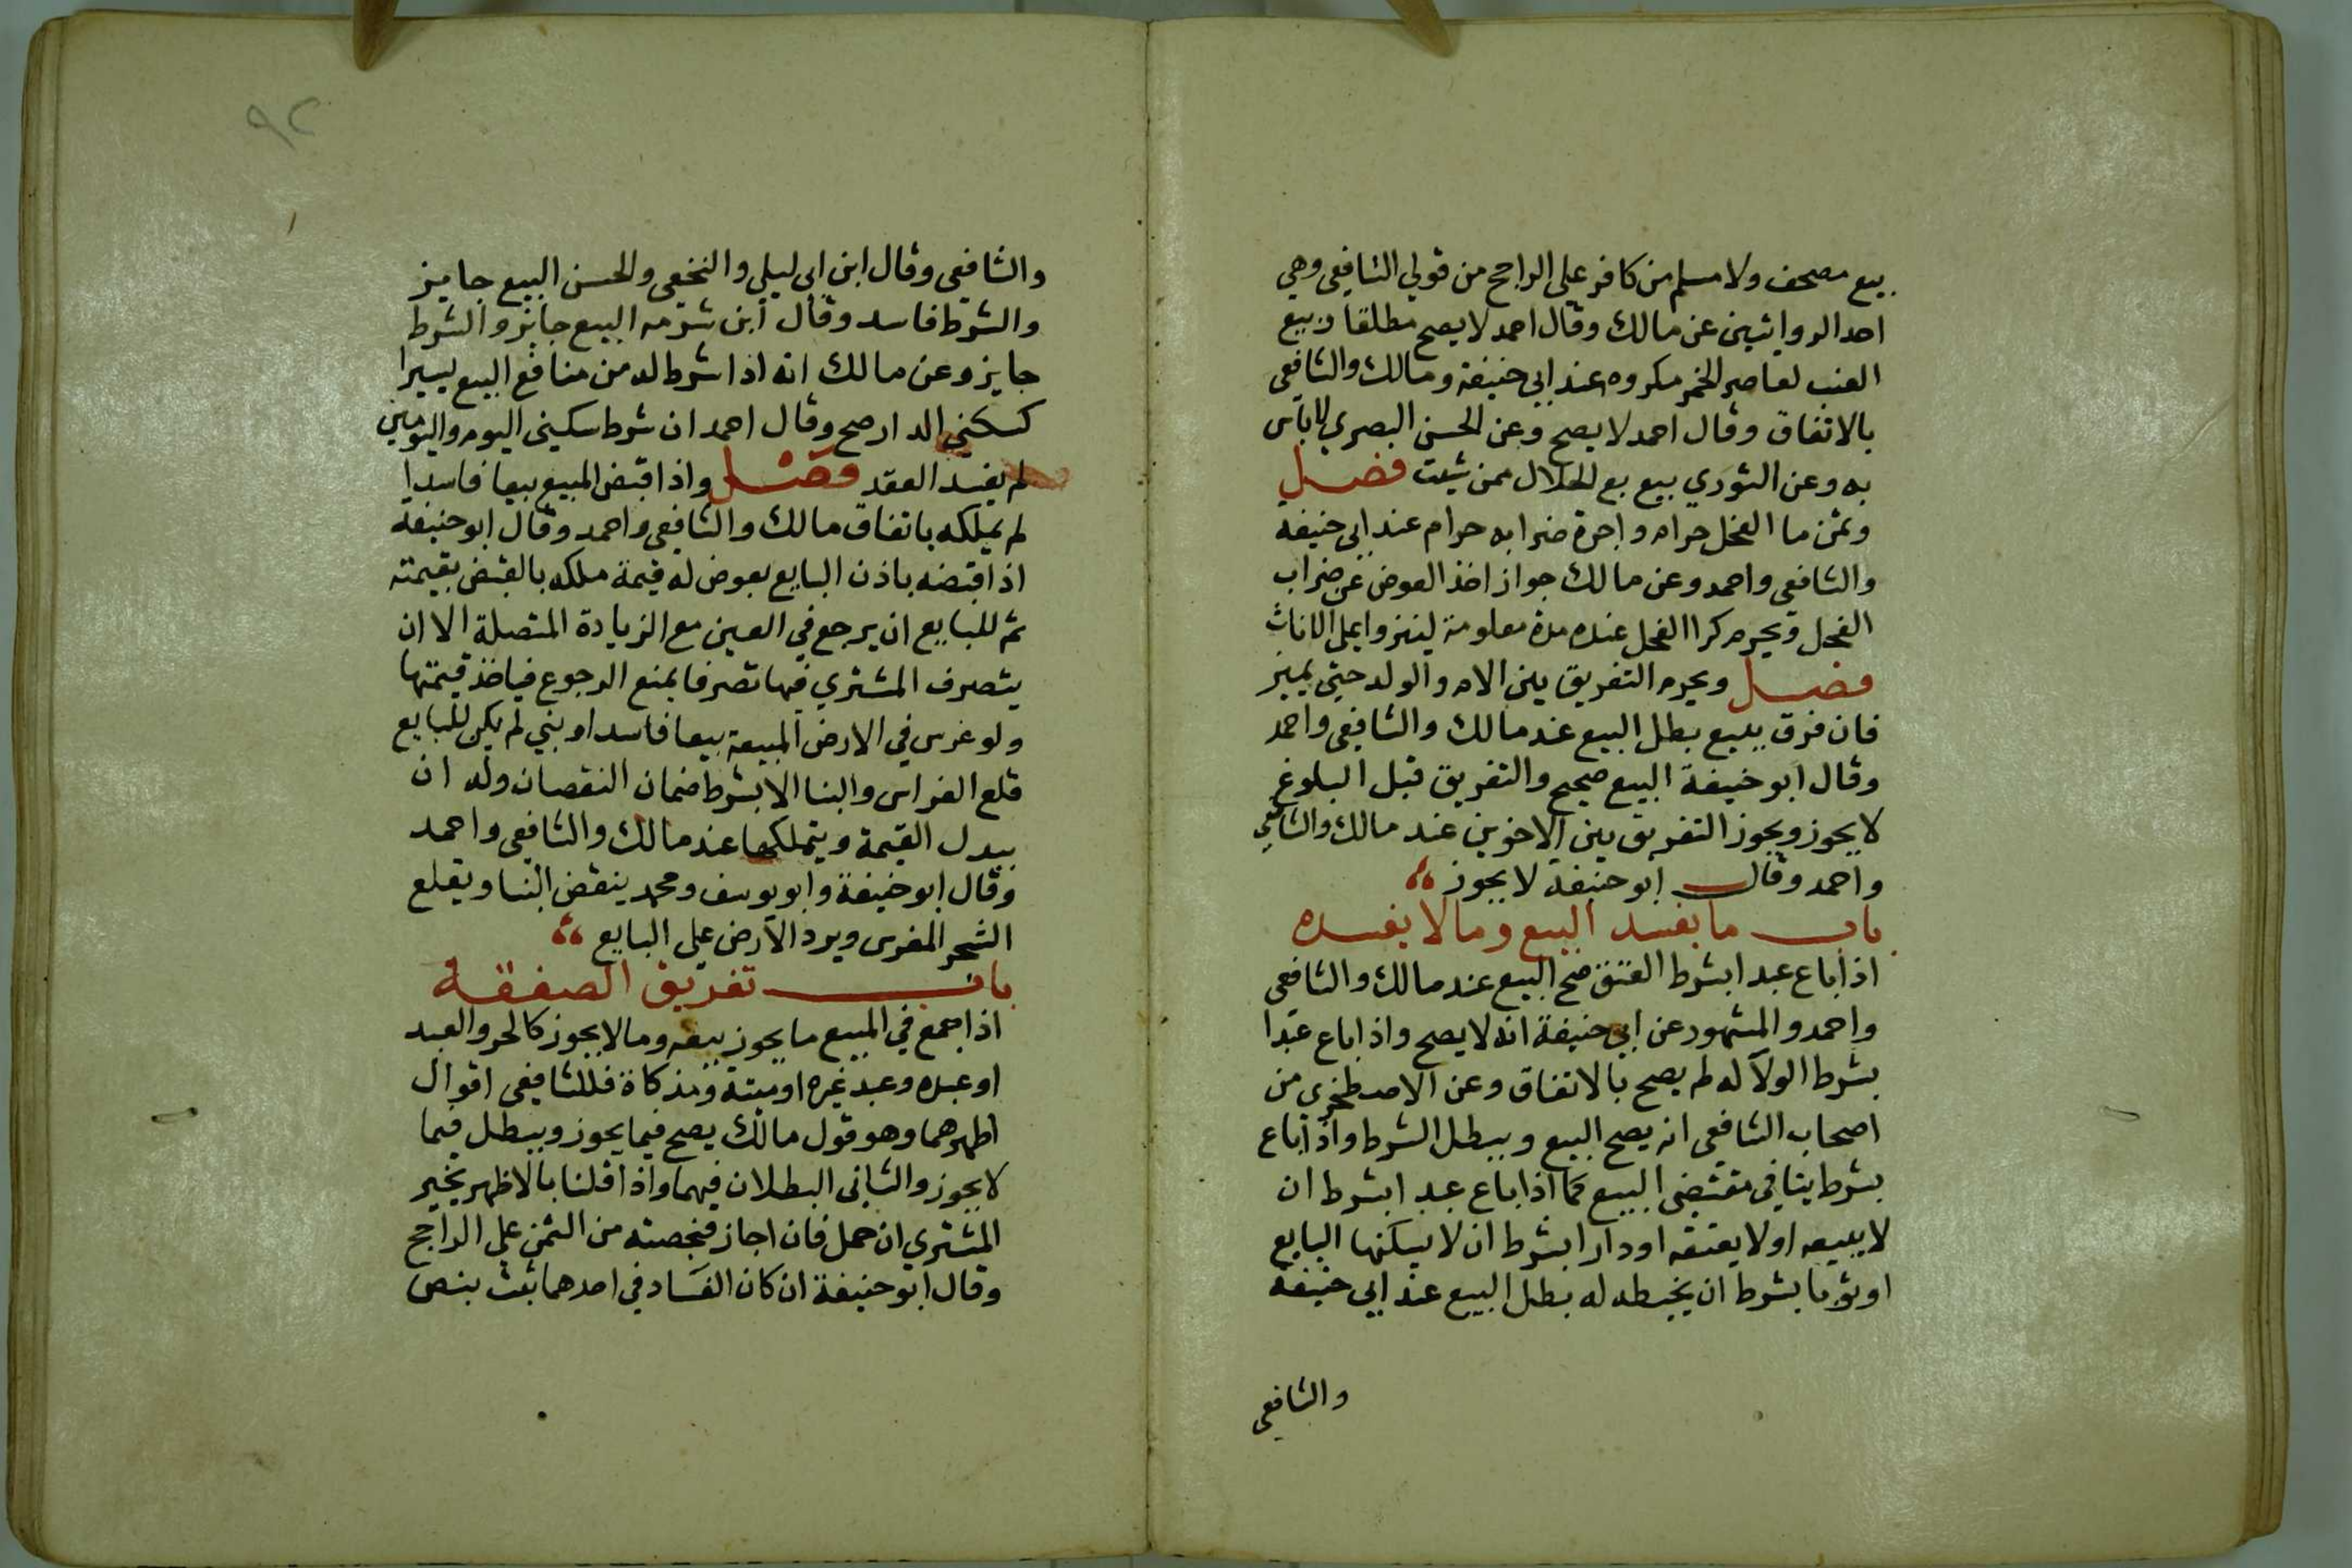 بيع مصحف ولا مسلم من كافر على الراجح من قولي الشافعي وهي
احد الروايتين عن مالك وقال احمد لا يصح مطلقا وبيع
العنب لعاصر الخمر مكروه عند ابي حنيفة ومالك والشافعي
بالاتفاق وقال احمد لا يصح وعن الحسن البصري لا باس
به وعن الثوري بيع بع الحلال ممن شيت فصل
وثمن ما الفحل حرام واجرة ضرابه حرام عند ابي حنيفة
والشافعي واحمد وعن مالك جواز اخذ العوض عن ضراب
الفحل ويحرم كرا الفحل عنده مدة معلومة لينزوا على الاناث
فصل ويحرم التفريق بين الام والولد حتي يميز
فان فرق ببيع بطل البيع عند مالك والشافعي واحمد
وقال ابو حنيفة البيع صحيح والتفريق قبل البلوغ
لا يجوز ويجوز التفريق بين الاخوين عند مالك والشافعي
واحمد وقال ابو حنيفة لا يجوز
باب ما يفسد البيع وما لا يفسده
اذا باع عبدا بشرط العتق صح البيع عند مالك والشافعي
واحمد والمشهور عن ابي حنيفة انه لا يصح واذا باع عبدا
بشرط الولآ له لم يصح بالاتفاق وعن الاصطخري من
اصحاب الشافعي انه يصح البيع ويبطل الشرط واذا باع
بشرط ينافي مقتضي البيع كما اذا باع عبدا بشرط ان
لا يبيعه او لا يعتقه او دارا بشرط ان لا يسكنها البايع
او ثوبا بشرط ان يخيطه له بطل البيع عند ابي حنيفة
والشافعي
٩٢
والشافعي وقال ابن ابي ليلي والنخعي والحسن البيع جايز
والشرط فاسد وقال ابن شبرمه البيع جايز والشرط
جايز وعن مالك انه اذا شرط له من منافع البيع يسيرا
كسكني الدار صح وقال احمد ان شرط سكني اليوم واليومين
لم يفسد العقد فصل واذا قبض المبيع بيعا فاسدا
لم يملكه باتفاق مالك والشافعي واحمد وقال ابو حنيفة
اذا قبضه باذن البايع بعوض له قيمة ملكه بالقبض بقيمته
ثم للبايع ان يرجع في العين مع الزيادة المتصلة الا ان
يتصرف المشتري فيها تصرفا يمنع الرجوع فياخذ قيمتها
ولو غرس في الارض المبيعة بيعا فاسدا او بني لم يكن للبايع
قلع الغراس والبنا الا بشرط ضمان النقصان وله ان
يبدل القيمة ويتملكها عند مالك والشافعي واحمد
وقال ابو حنيفة وابو يوسف ومحمد ينقض البنا ويقلع
الشجر المغرس ويرد الارض على البايع
باب تفريق الصفقة
اذا جمع في المبيع ما يجوز بيعه وما لا يجوز كالحر والعبد
او عبده وعبد غيره او ميتة ومذكاة فللشافعي اقوال
اظهرهما وهو قول مالك يصح فيما يجوز ويبطل فيما
لا يجوز والثاني البطلان فيهما واذا قلنا بالاظهر يخير
المشتري ان جهل فان اجاز فبحصته من الثمن على الراجح
وقال ابو حنيفة ان كان الفساد في احدهما ثبت بنص